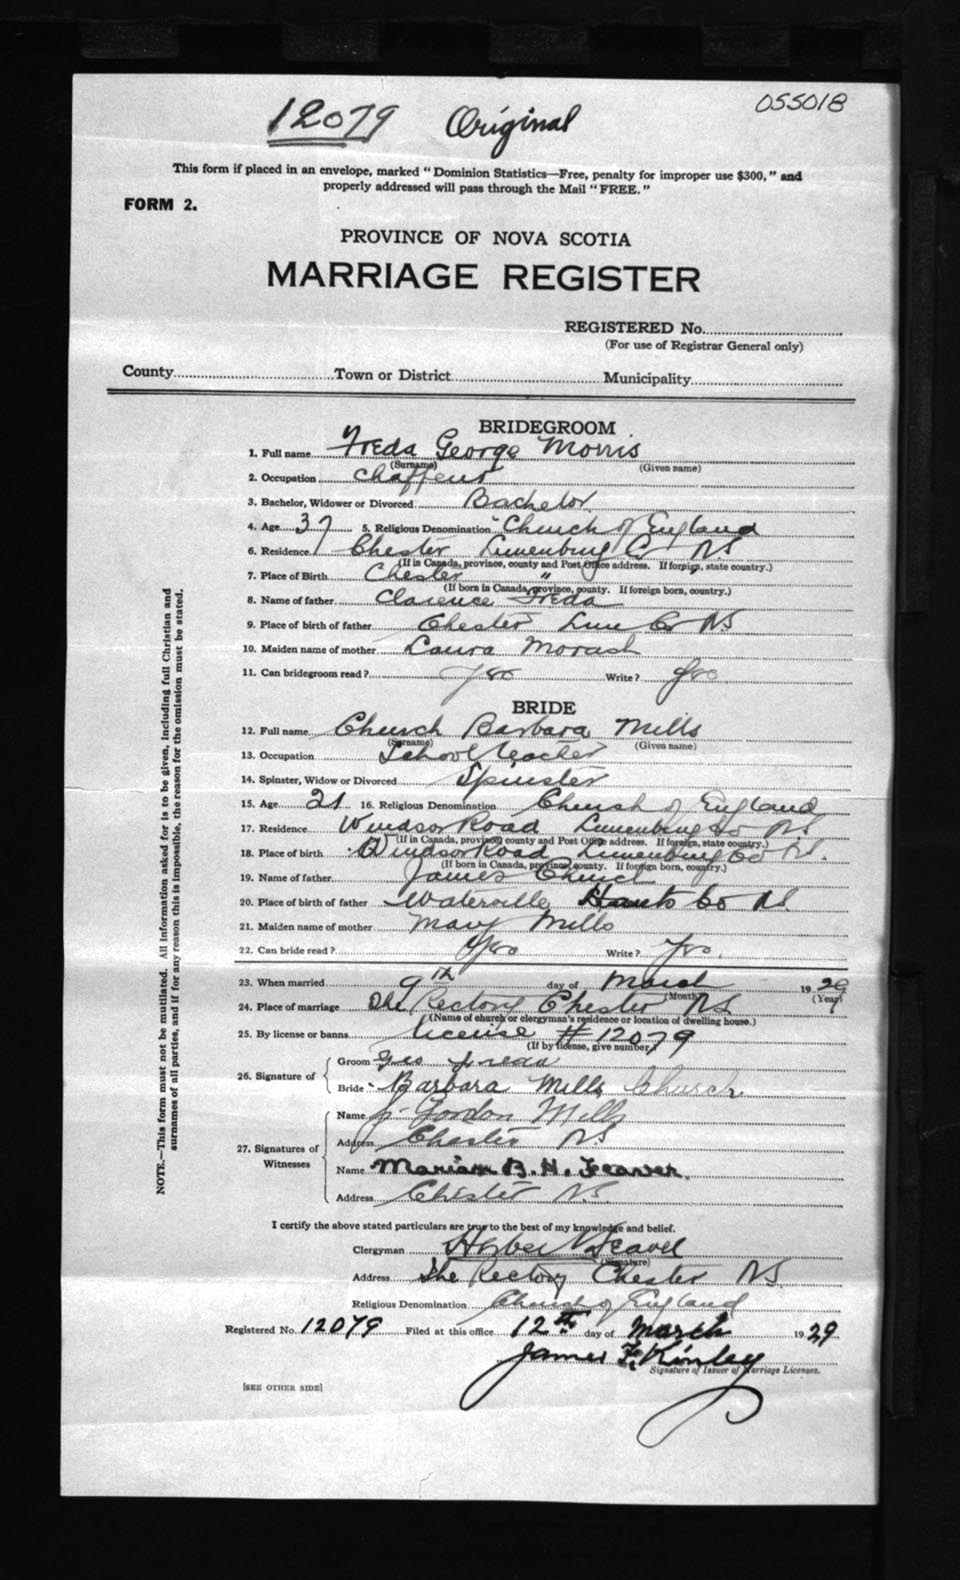 12079 Original 055018
This form if placed in an envelope, marked "Dominion Statistics—Free, penalty for improper use $300," and
properly addressed will pass through the Mail "FREE."
FORM 2.
PROVINCE OF NOVA SCOTIA
MARRIAGE REGISTER
REGISTERED No.
(For use of Registrar General only)
County Town or District Municipality
BRIDEGROOM
1. Full name Freda George Morris
(Surname) (Given name)
2. Occupation Chaffeur
3. Bachelor, Widower or Divorced Bachelor
4. Age 37 5. Religious Denomination Church of England
6. Residence Chester Lunenburg Co NS
(If in Canada, province, county and Post Office address. If foreign, state country.)
7. Place of Birth Chester "
(If born in Canada, province, county. If foreign born, country.)
8. Name of father Clarence Freda
9. Place of birth of father Chester Lun Co NS
10. Maiden name of mother Laura Morash
11. Can bridegroom read? Yes Write? Yes
BRIDE
12. Full name Church Barbara Mills
(Surname) (Given name)
13. Occupation School teacher
14. Spinster, Widow or Divorced Spinster
15. Age 21 16. Religious Denomination Church of England
17. Residence Windsor Road Lunenburg Co NS
(If in Canada, province, county and Post Office address. If foreign, state country.)
18. Place of birth Windsor Road Lunenburg Co NS.
(If born in Canada, province, county. If foreign born, country.)
19. Name of father James Church
20. Place of birth of father Waterville Hants Co NS
21. Maiden name of mother Mary Mills
22. Can bride read? Yes Write? Yes.
23. When married 9th day of March 1929
(Month) (Year)
24. Place of marriage The Rectory Chester NS
(Name of church or clergyman's residence or location of dwelling house.)
25. By license or banns license # 12079
(If by license, give number)
26. Signature of Groom Geo Freda
Bride Barbara Mills Church.
27. Signatures of Witnesses Name J. Gordon Mills
Address Chester NS
Name Marian B. H. Feaver.
Address Chester NS
I certify the above stated particulars are true to the best of my knowledge and belief.
Clergyman Feaver
(Signature)
Address The Rectory Chester NS
Religious Denomination Church of England
Registered No. 12079 Filed at this office 12th day of March 1929
James F. Kinley
Signature of Issuer of Marriage Licenses.
[SEE OTHER SIDE]
NOTE.—This form must not be mutilated. All information asked for is to be given, including full Christian and
surnames of all parties, and if for any reason this is impossible, the reason for the omission must be stated.